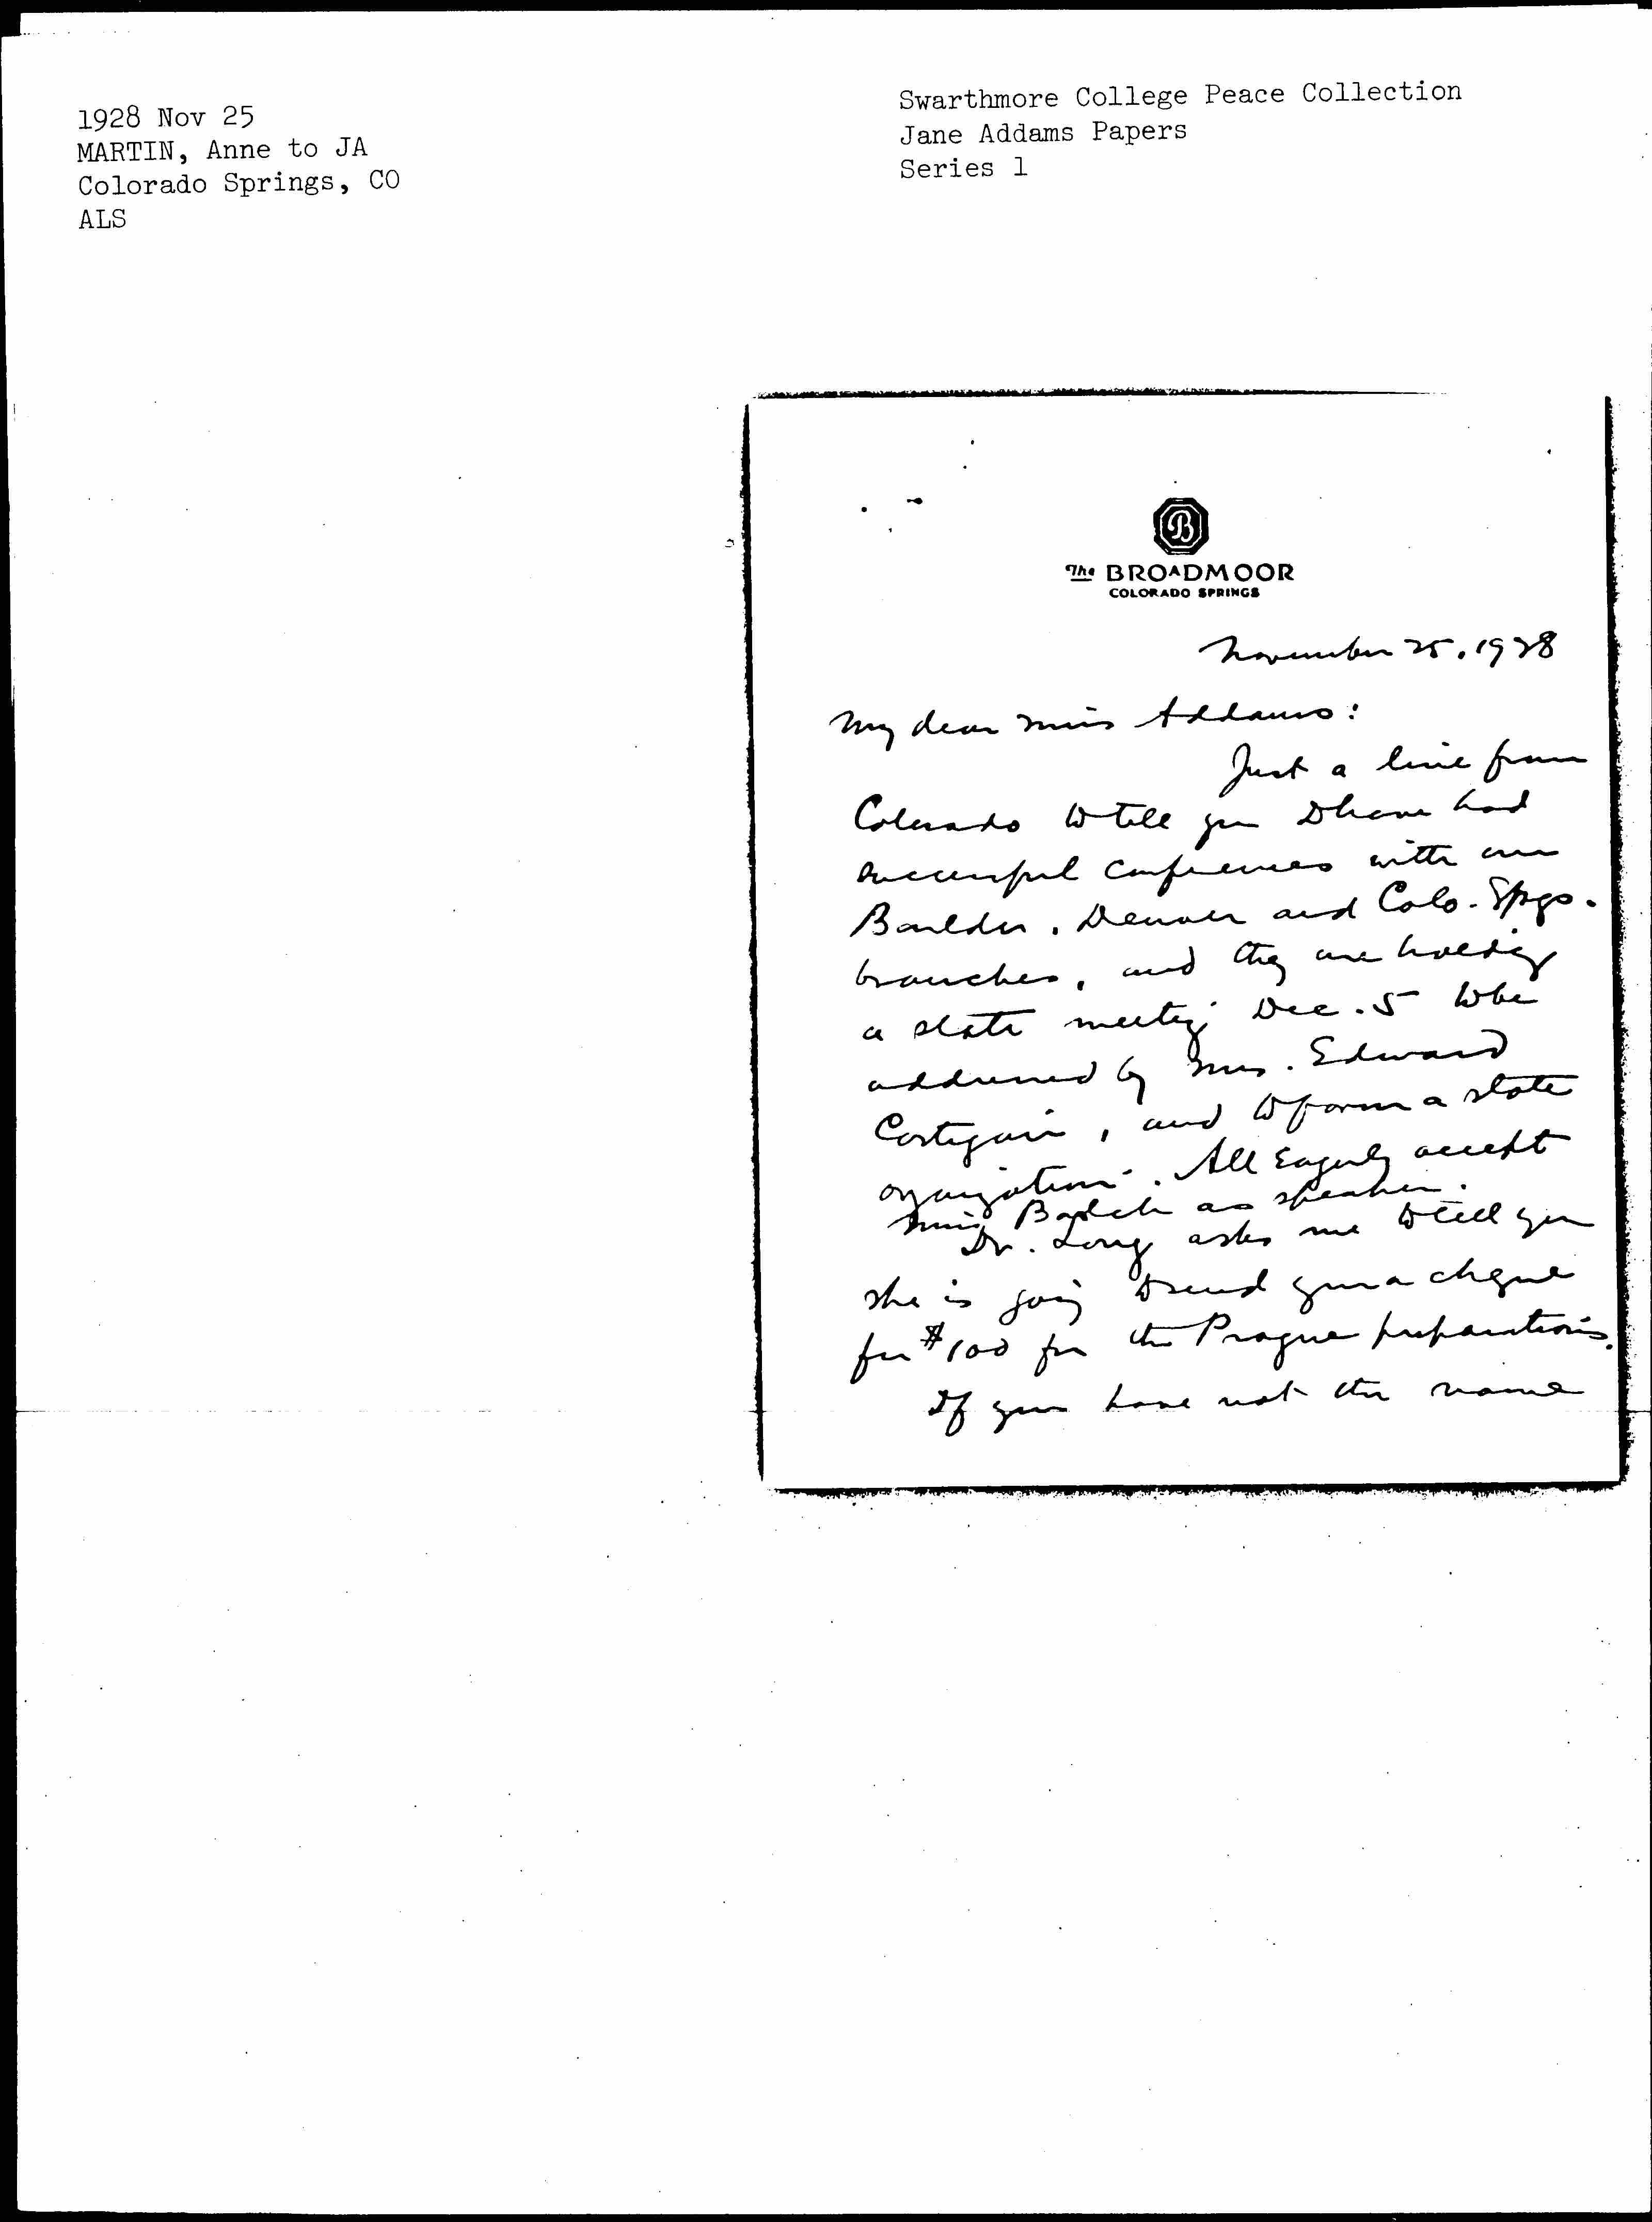 1928 Nov 25
MARTIN, Anne to JA
Colorado Springs, CO
ALS
Swarthmore College Peace Collection
Jane Addams Papers
Series 1
B
The BROADMOOR
COLORADO SPRINGS
November 25, 1928
My dear Miss Addams:
Just a line from
Colorado to tell you I have had
successful conferences with our
Boulder, Denver and Colo. Spgs.
branches, and they are holding
a state meeting Dec. 5 to be
addressed by Mrs. Edward
Costigan, and to form a state
organization. All eagerly accept
Miss Balch as speaker.
Dr. Long asks me to tell you
she is going to send you a cheque
for $100 for the Prague preparations.
If you have not the name